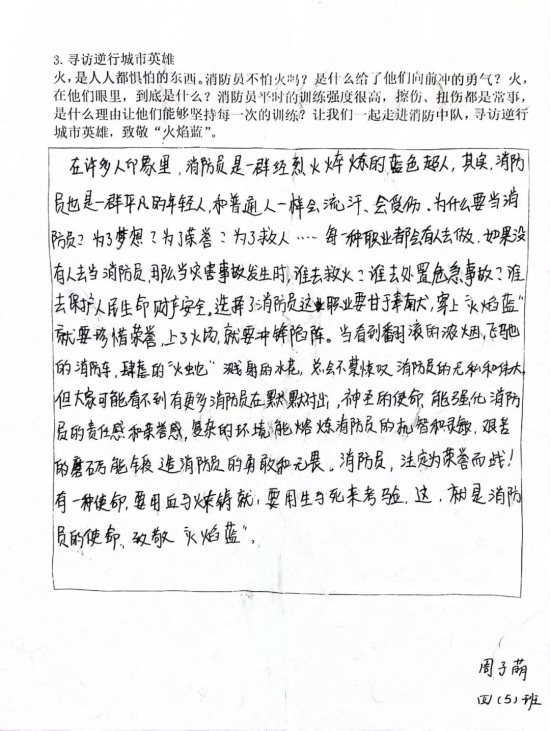 3. 寻访逆行城市英雄
火，是人人都惧怕的东西。消防员不怕火吗？是什么给了他们向前冲的勇气？火，
在他们眼里，到底是什么？消防员平时的训练强度很高，擦伤、扭伤都是常事，
是什么理由让他们能够坚持每一次的训练？让我们一起走进消防中队，寻访逆行
城市英雄，致敬“火焰蓝”。
在许多人印象里，消防员是一群经烈火焠炼的蓝色超人，其实，消防
员也是一群平凡的年轻人，和普通人一样会流汗、会受伤。为什么要当消
防员？为了梦想？为了荣誉？为了救人……每一种职业都会有人去做，如果没
有人去当消防员，那么当灾害事故发生时，谁去救火？谁去处置危急事故？谁
去保护人民生命财产安全。选择了消防员这业职业要甘于奉献，穿上“火焰蓝”
就要珍惜荣誉，上了火场，就要冲锋陷阵。当看到翻滚的浓烟，飞驰
的消防车，肆虐的“火蛇”溅身的水花，总会不禁惊叹消防员的无私和伟大，
但大家可能看不到有更多消防员在默默付出，神圣的使命，能强化消防
员的责任感和荣誉感，复杂的环境能熔炼消防员的机智和灵敏，艰苦
的磨砺能锻造消防员的勇敢和无畏。消防员，注定为荣誉而战！
有一种使命，要用血与火来铸就，要用生与死来考验，这，就是消防
员的使命，致敬“火焰蓝”。
周子萌
四（5）班